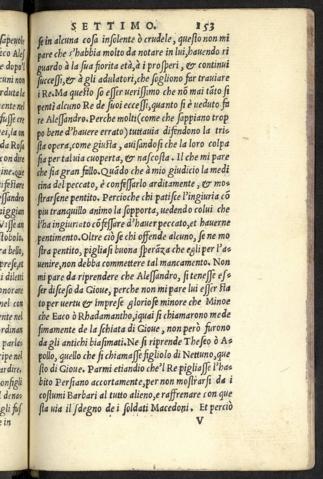 SETTIMO. 153
se in alcuna cosa insolente ò crudele, questo non mi
pare che s'habbia molto da notare in lui, hauendo ri
guardo à la sua fiorita età, à i prosperi, & continui
successi, & à gli adulatori, che sogliono far trauiare
i Re. Ma questo so esser uerissimo che nō mai tāto si
pentì alcuno Re de suoi eccessi, quanto si è ueduto fa
re Alessandro. Perche molti (come che sappiano trop
po bene d'hauere errato) tuttauia difendono la tri-
sta opera, come giusta, auisandosi che la loro colpa
sia per tal uia cuoperta, & nascosta. Il che mi pare
che sia gran fallo. Quādo che à mio giudicio la medi
cina del peccato, è confessarlo arditamente, & mo-
strarsene pentito. Percioche chi patisce l'ingiuria cō
piu tranquillo animo la sopporta, uedendo colui che
l'ha ingiuriato cōfessare d'hauer peccato, et hauerne
pentimento. Oltre ciò se chi offende alcuno, se ne mo
stra pentito, pigliasi buona sperāza che egli per l'a-
uenire, non debba commettere tal mancamento. Non
mi pare da riprendere che Alessandro, si tenesse es-
ser disceso da Gioue, perche non mi pare lui esser sta
to per uertu & imprese gloriose minore che Minoe
che Eaco ò Rhadamantho, iquai si chiamarono mede
simamente de la schiata di Gioue, non però furono
da gli antichi biasimati. Ne si riprende Theseo ò A-
pollo, quello che si chiamasse figliolo di Nettuno, que
sto di Gioue. Parmi etiandio che'l Re pigliasse l'ha-
bito Persiano accortamente, per non mostrarsi da i
costumi Barbari al tutto alieno, e raffrenare con que
sta uia il sdegno de i soldati Macedoni. Et perciò
V